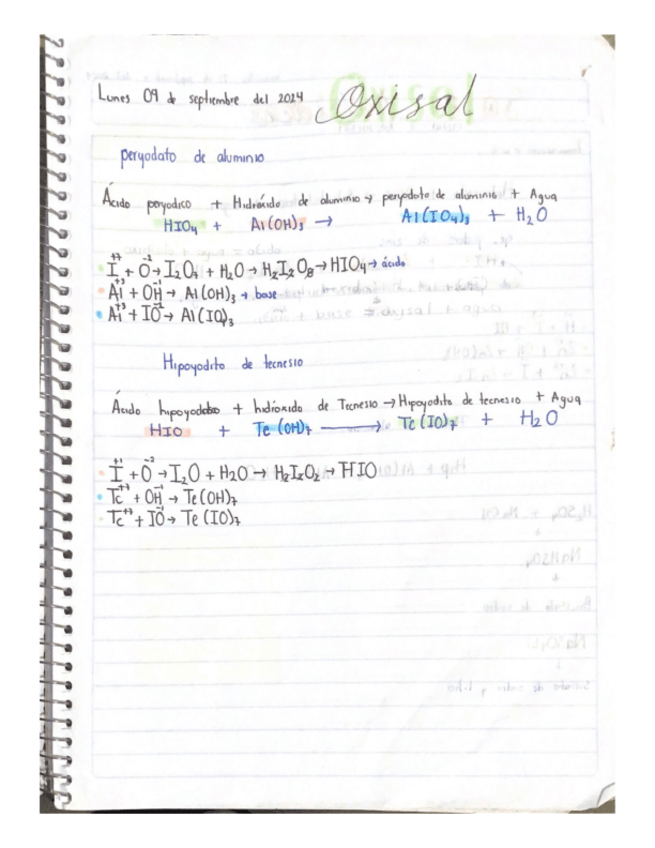 Lunes 09 de septiembre del 2024 Oxisal
peryodato de aluminio
Ácido peryodico + Hidróxido de aluminio → peryodato de aluminio + Agua
HIO₄ + Al(OH)₃ → Al(IO₄)₃ + H₂O
I⁺⁷ + O⁻² → I₂O₇ + H₂O → H₂I₂O₈ → HIO₄ → ácido
Al⁺³ + OH⁻¹ → Al(OH)₃ → base
Al⁺³ + IO⁻¹ → Al(IO)₃
Hipoyodito de tecnesio
Ácido hipoyodoso + hidróxido de Tecnesio → Hipoyodito de tecnesio + Agua
HIO + Tc(OH)₇ → Tc(IO)₇ + H₂O
I⁺¹ + O⁻² → I₂O + H₂O → H₂I₂O₂ → HIO
Tc⁺⁷ + OH⁻¹ → Tc(OH)₇
Tc⁺⁷ + IO⁻¹ → Tc(IO)₇